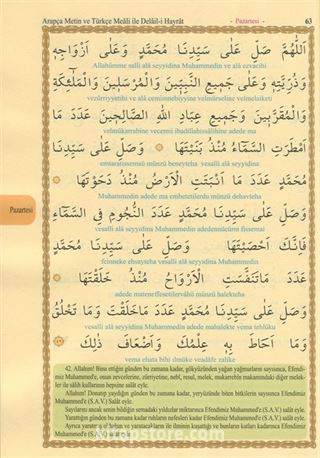 Arapça Metin ve Türkçe Meâli ile Delâil-i Hayrât
- Pazartesi -
63
اَللّٰهُمَّ صَلِّ عَلٰى سَيِّدِنَا مُحَمَّدٍ وَعَلٰى اَزْوَاجِهِ
Allahümme salli alâ seyyidina Muhammedin ve alâ ezvacihi
وَذُرِّيَّتِهِ وَعَلٰى جَمِيعِ النَّبِيِّينَ وَالْمُرْسَلِينَ وَالْمَلٰٓئِكَةِ
vezürriyyetihi ve alâ cemiinnebiyyine velmürseline velmelaiketi
وَالْمُقَرَّبِينَ وَجَمِيعِ عِبَادِ اللّٰهِ الصَّالِحِينَ عَدَدَ مَا
velmükarrabine vecemii ibadillahissâlihine adede ma
اَمْطَرَتِ السَّمَٓاءُ مُنْذُ بَنَيْتَهَا وَصَلِّ عَلٰى سَيِّدِنَا
emtaratissemaü münzü beneyteha vesalli alâ seyyidina
مُحَمَّدٍ عَدَدَ مَا اَنْبَتَتِ الْاَرْضُ مُنْذُ دَحَوْتَهَا
Muhammedin adede ma enbetetilerdu münzü dehavteha
وَصَلِّ عَلٰى سَيِّدِنَا مُحَمَّدٍ عَدَدَ النُّجُومِ فِى السَّمَٓاءِ
vesalli alâ seyyidina Muhammedin adedennücûmi fissemai
فَاِنَّكَ اَحْصَيْتَهَا وَصَلِّ عَلٰى سَيِّدِنَا مُحَمَّدٍ
feinneke ehsayteha vesalli alâ seyyidina Muhammedin
عَدَدَ مَاتَنَفَّسَتِ الْاَرْوَاحُ مُنْذُ خَلَقْتَهَا
adede mateneffesetilervâhü münzü halekteha
وَصَلِّ عَلٰى سَيِّدِنَا مُحَمَّدٍ عَدَدَ مَاخَلَقْتَ وَمَا تَخْلُقُ
vesalli alâ seyyidina Muhammedin adede mahalekte vema tehlûku
وَمَا اَحَاطَ بِهِ عِلْمُكَ وَاَضْعَافَ ذٰلِكَ
vema ehata bihi ilmüke veadâfe zalike
Pazartesi
42. Allahım! Bina ettiğin günden bu zamana kadar, gökyüzünden yağan yağmurların sayısınca, Efendimiz Muhammed'e, onun zevcelerine, zürriyetine, nebî, resul, melek, mukarrebîn makamındaki diğer melekler ile sâlih kullarının hepsine salât eyle.
Allahım! Donatıp yaydığın günden bu zamana kadar, yeryüzünde biten bitkilerin sayısınca Efendimiz Muhammed'e (S.A.V.) Salât eyle.
Sayılarını ancak senin bildiğin semadaki yıldızlar miktarınca Efendimiz Muhammed'e (S.A.V.) salât eyle.
Yarattığın günden bu zamana kadar ruhların nefesleri adedince Efendimiz Muhammed'e (S.A.V.) salât eyle.
Ayrıca yarattığın ve yaratacakların ile ilminin kuşattığı ve bunların katları kadarınca Efendimiz Muhammed'e (S.A.V.) salât eyle.
kitapstore.com